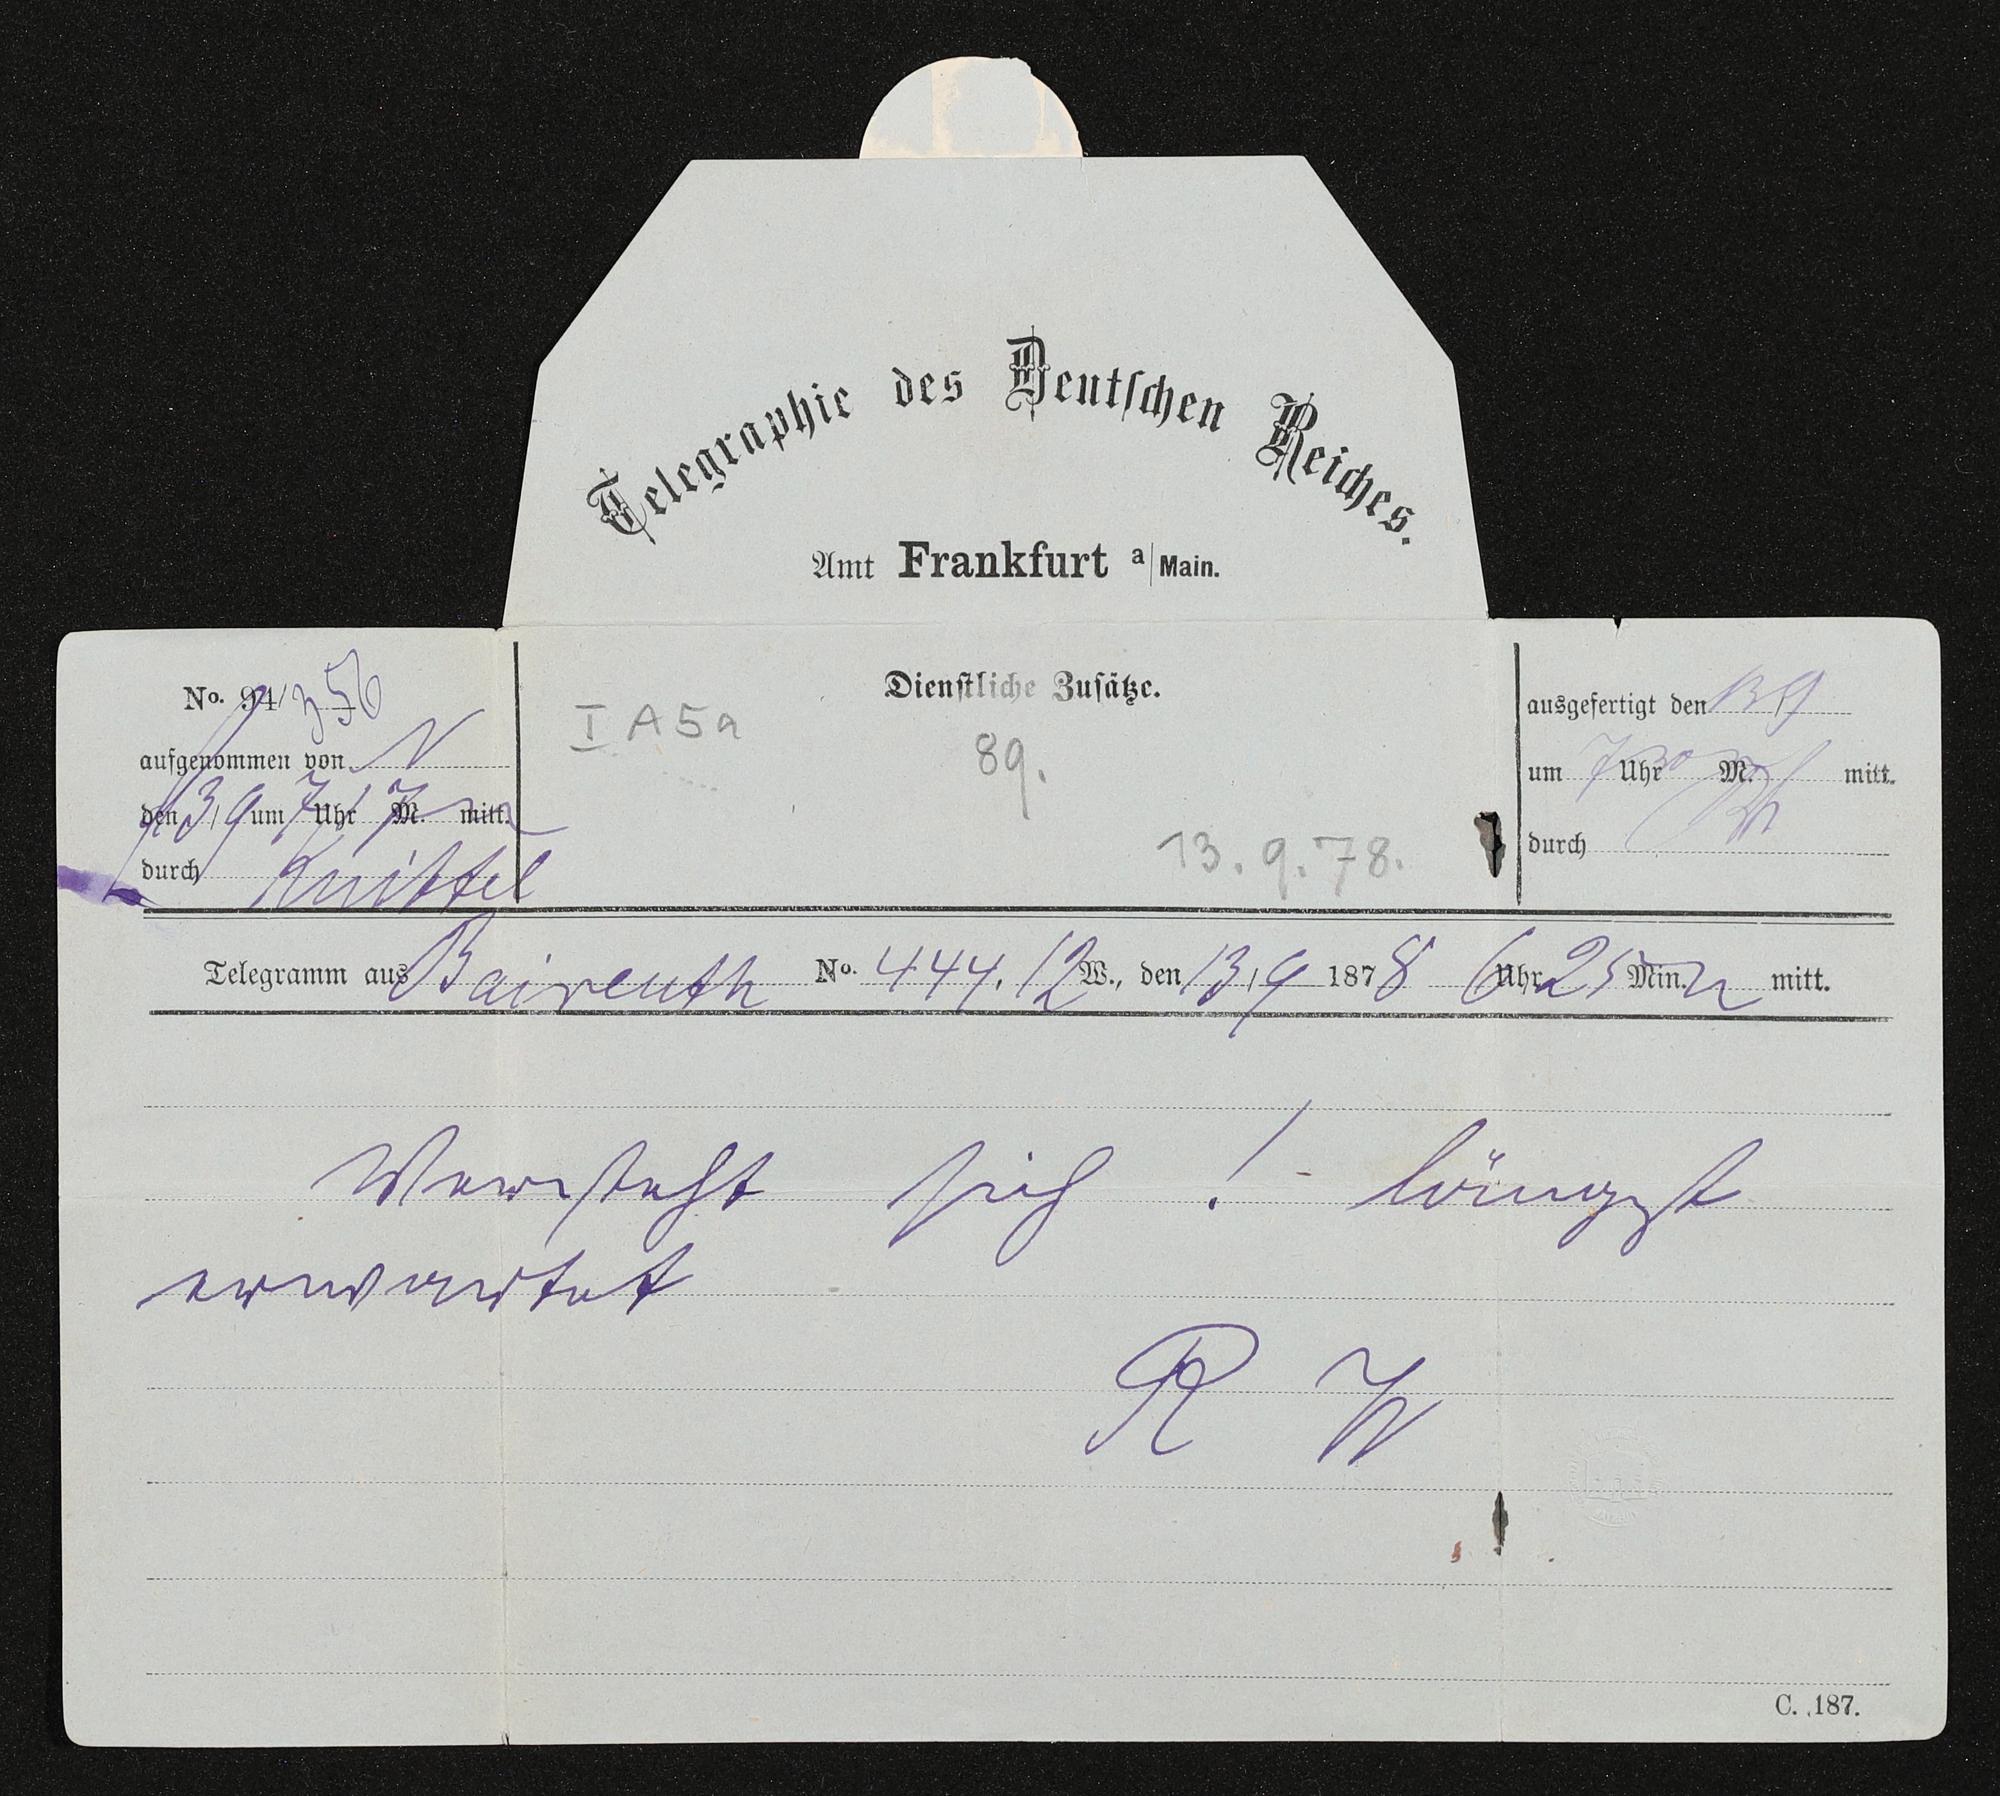 Telegraphie des Deutschen Reiches.
Amt Frankfurt a/Main.
Dienstliche Zusätze.
I A 5a
89.
13.9.78.
No. 94/356
aufgenommen von N
den 13/9 um 7 Uhr 17 M. n mitt.
durch Knittel
ausgefertigt den 13/9
um 7 Uhr 30 M. mitt.
durch
Telegramm aus Baireuth No. 444. 12 W., den 13/9 1878 6 Uhr 25 Min. n mitt.
Versteht sich ! - längst
erwartet
R W
C. 187.